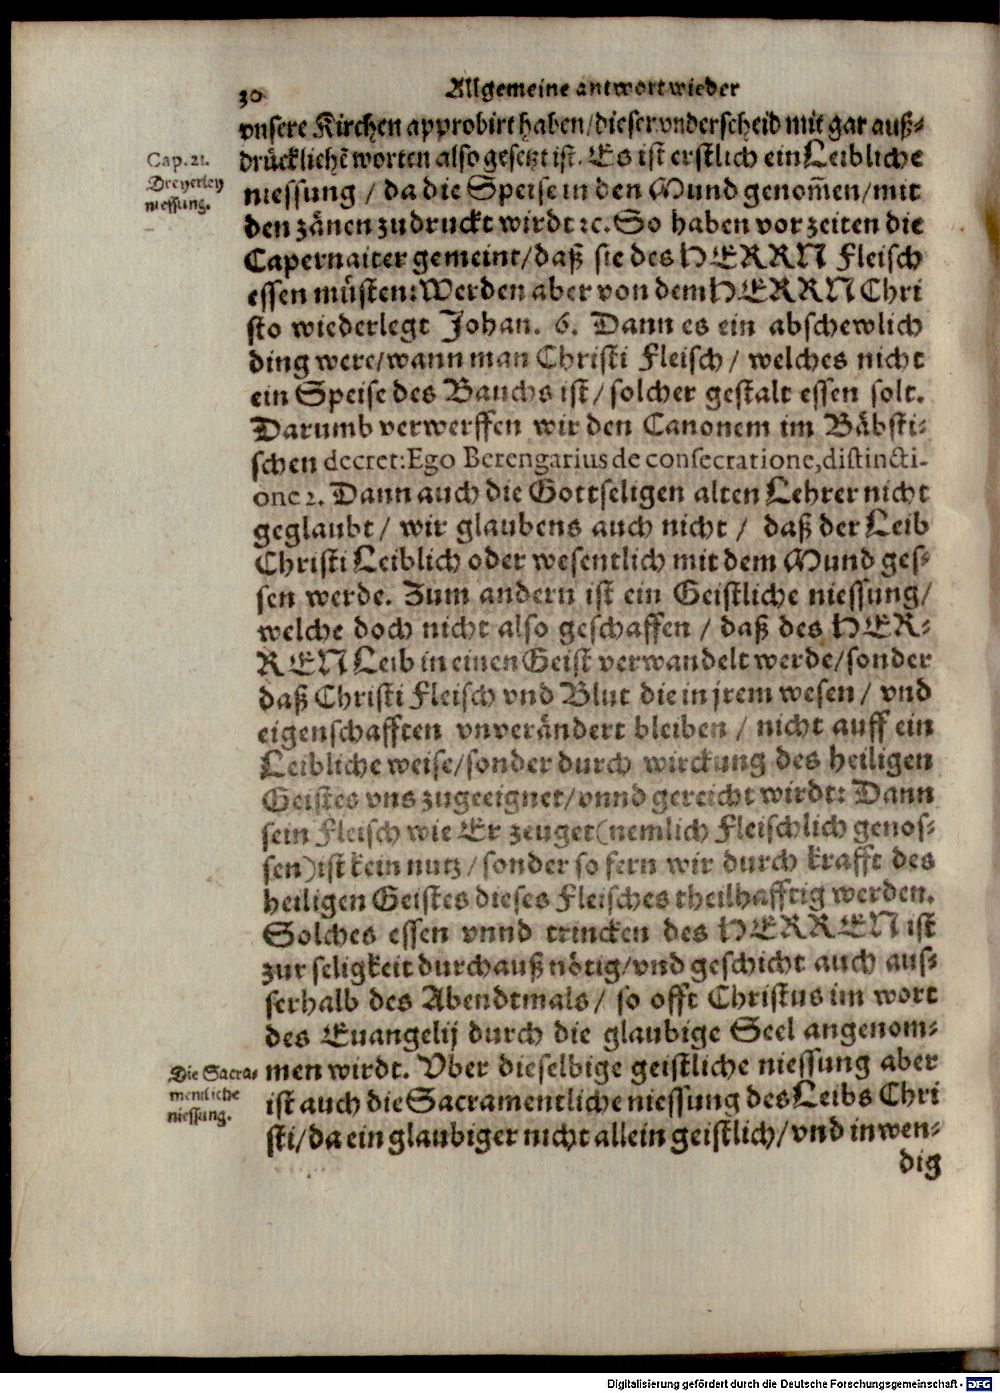 30
Allgemeine antwort wieder
vnsere Kirchen approbirt haben/dieser vnderscheid mit gar auß-
Cap. 21.
Dreyerley
niessung.
drücklichẽ worten also gesetzt ist. Es ist erstlich ein Leibliche
niessung / da die Speise in den Mund genom̃en/mit
den zänen zudruckt wirdt ꝛc. So haben vor zeiten die
Capernaiter gemeint/daß sie des HERRN Fleisch
essen müsten: Werden aber von dem HERRN Chri
sto wiederlegt Johan. 6. Dann es ein abschewlich
ding were/wann man Christi Fleisch / welches nicht
ein Speise des Bauchs ist / solcher gestalt essen solt.
Darumb verwerffen wir den Canonem im Bäbsti-
schen decret: Ego Berengarius de consecratione, distincti-
one 2. Dann auch die Gottseligen alten Lehrer nicht
geglaubt / wir glaubens auch nicht / daß der Leib
Christi Leiblich oder wesentlich mit dem Mund ges-
sen werde. Zum andern ist ein Geistliche niessung/
welche doch nicht also geschaffen / daß des HER-
REN Leib in einen Geist verwandelt werde/sonder
daß Christi Fleisch vnd Blut die in jrem wesen / vnd
eigenschafften vnverändert bleiben / nicht auff ein
Leibliche weise/sonder durch wirckung des heiligen
Geistes vns zugeeignet/vnnd gereicht wirdt: Dann
sein Fleisch wie Er zeuget(nemlich Fleischlich genos-
sen)ist kein nutz / sonder so fern wir durch krafft des
heiligen Geistes dieses Fleisches theilhafftig werden.
Solches essen vnnd trincken des HERREN ist
zur seligkeit durchauß nötig/vnd geschicht auch aus-
serhalb des Abendtmals / so offt Christus im wort
des Euangelij durch die glaubige Seel angenom-
Die Sacra-
mentliche
niessung.
men wirdt. Vber dieselbige geistliche niessung aber
ist auch die Sacramentliche niessung des Leibs Chri
sti/da ein glaubiger nicht allein geistlich/vnd inwen-
dig
Digitalisierung gefördert durch die Deutsche Forschungsgemeinschaft - DFG